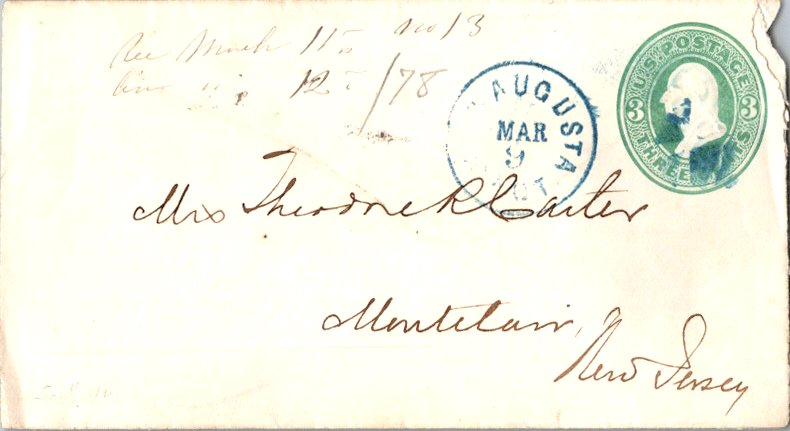 Rec March 11th No 13
Ans " 12th /78
AUGUSTA
MAR
9
U.S. POSTAGE
3 3
THREE CENTS
Mrs Theodore K Carter
Montclair,
New Jersey